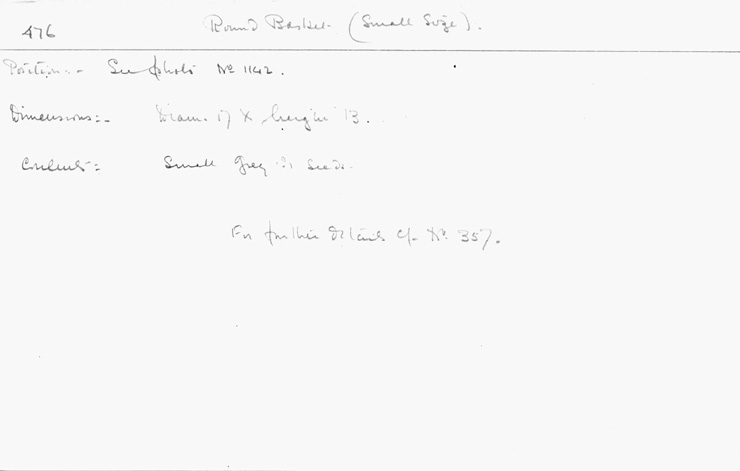 476 Round Basket (Small Size).
Position:- See photo No 1142.
Dimensions:- Diam. 17 × height 13.
Contents:- Small grey seeds.
For further details cf. No. 357.